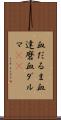 血だるま血
達磨血ダル
マ